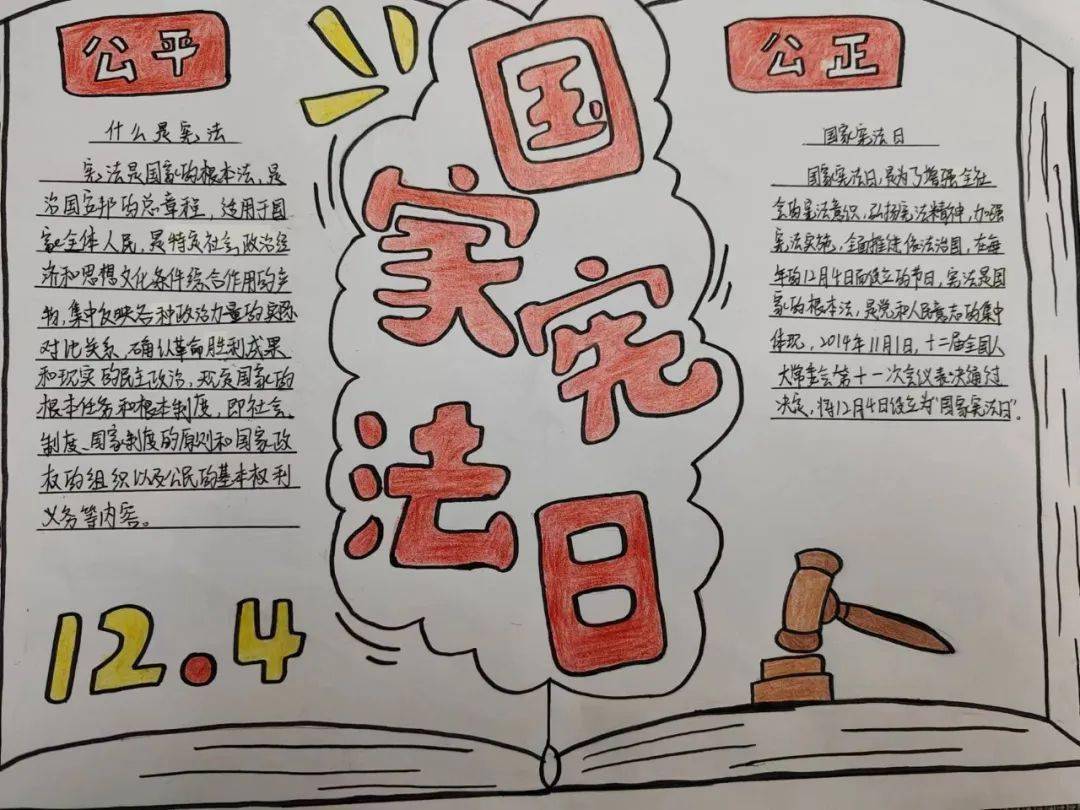 公平
什么是宪法
宪法是国家的根本法，是
治国安邦的总章程，适用于国
家全体人民，是特定社会政治经
济和思想文化条件综合作用的产
物，集中反映各种政治力量的实际
对比关系，确认革命胜利成果
和现实的民主政治，规定国家的
根本任务和根本制度，即社会
制度、国家制度的原则和国家政
权的组织以及公民的基本权利
义务等内容。
12.4
国
家
宪
法
日
公正
国家宪法日
国家宪法日，是为了增强全社
会的宪法意识，弘扬宪法精神，加强
宪法实施，全面推进依法治国，在每
年的12月4日而设立的节日，宪法是国
家的根本法，是党和人民意志的集中
体现，2014年11月1日，十二届全国人
大常委会第十一次会议表决通过
决定，将12月4日设立为"国家宪法日"。